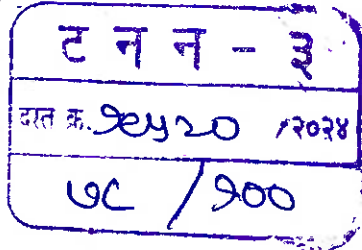 ट न न - ३
दस्त क्र. १९५२० /२०२४
७८ / १००